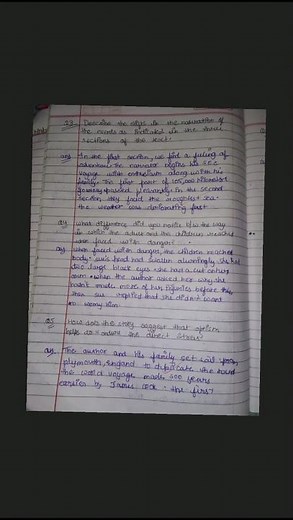 Describe the shifts in the narration of
the events as indicated in the three
sections of the text.
ans) In the first section, we find a feeling of
adventure. The narrator begins his
voyage with enthusiasm along with his
family. The first part of 105,000 kilometer
journey passed pleasantly. In the second
section, they faced the roughest sea.
the weather was
What difference did you notice
in
was faced with danger?
ans) When faced with danger, the children reacted
Sue's head had swollen alarmingly she had
two large black eyes she had a cut on her
arm. when the author asked her why she
hadn't made more of her injuries before this
than sue replied that she didn't want
to worry him.
How does the story suggest that optimism
helps to endure the direst stress?
ans) The author and his family set sail from
plymouth, England to duplicate the round
the world voyage made 200 years
earlier by James Cook. The first